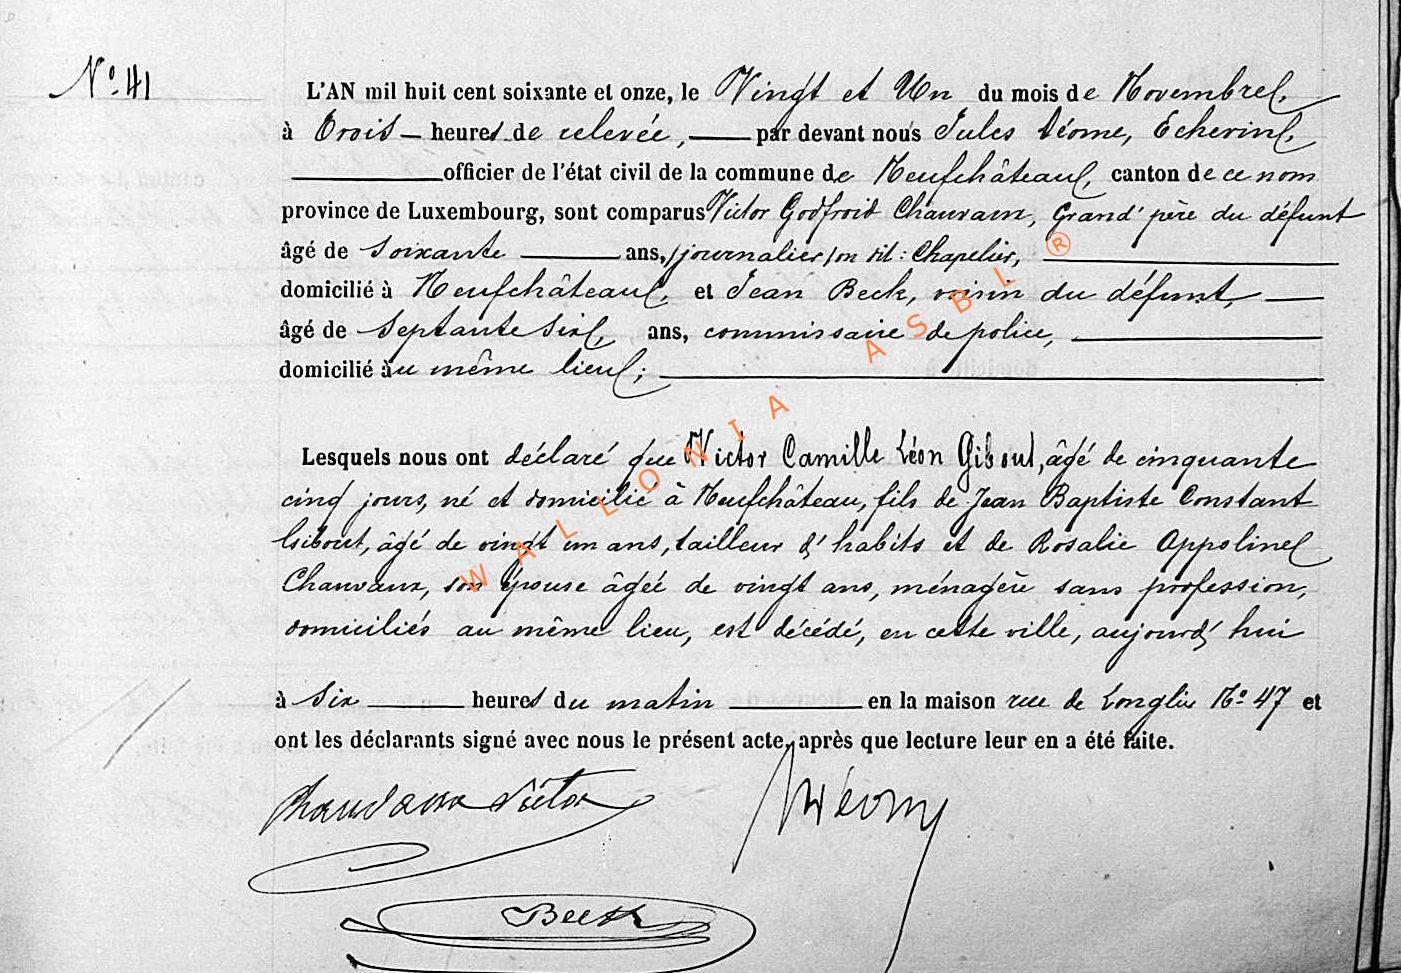 N° 41
L'AN mil huit cent soixante et onze, le Vingt et Un du mois de Novembre,
à Trois heures de relevée, par devant nous Jules Déome, Echevin,
officier de l'état civil de la commune de Neufchâteau, canton de ce nom
province de Luxembourg, sont comparus Victor Godfroid Chauvaux, Grand' père du défunt
âgé de Soixante ans, journalier, on dit: Chapelier,
domicilié à Neufchâteau, et Jean Beck, voisin du défunt,
âgé de Septante six, ans, commissaire de police,
domicilié au même lieu;
Lesquels nous ont déclaré que Victor Camille Léon Gibout, âgé de cinquante
cinq jours, né et domicilié à Neufchâteau, fils de Jean Baptiste Constant
Gibout, âgé de vingt un ans, tailleur d'habits et de Rosalie Appoline
Chauvaux, son épouse âgée de vingt ans, ménagère sans profession,
domiciliés au même lieu, est décédé, en cette ville, aujourd'hui
à Six heures du matin en la maison rue de Longlier N° 47 et
ont les déclarants signé avec nous le présent acte, après que lecture leur en a été faite.
Chauvaux Victor
JDéome
Beck
WALLONIA ASBL ®